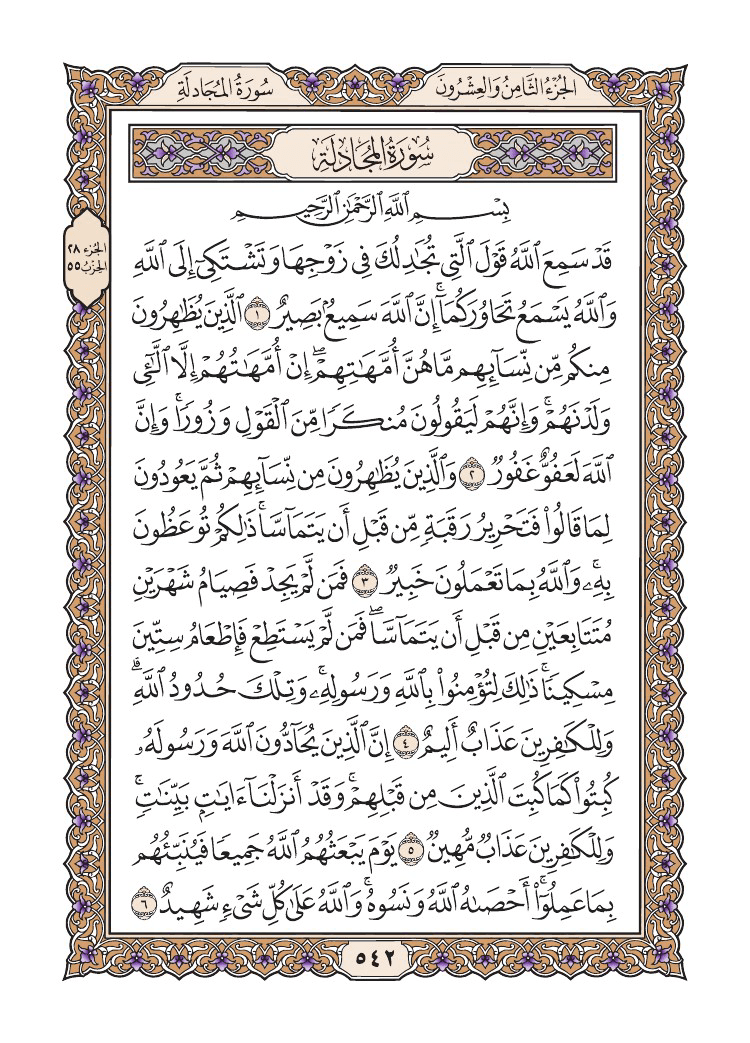 الجزء الثامن والعشرون
سورة المجادلة
سُورَةُ المُجَادلَةِ
الجزء ٢٨
الحزب ٥٥
بِسْمِ ٱللَّهِ ٱلرَّحْمَٰنِ ٱلرَّحِيمِ
قَدْ سَمِعَ ٱللَّهُ قَوْلَ ٱلَّتِي تُجَٰدِلُكَ فِي زَوْجِهَا وَتَشْتَكِيٓ إِلَى ٱللَّهِ
وَٱللَّهُ يَسْمَعُ تَحَاوُرَكُمَآۚ إِنَّ ٱللَّهَ سَمِيعُۢ بَصِيرٌ ١ ٱلَّذِينَ يُظَٰهِرُونَ
مِنكُم مِّن نِّسَآئِهِم مَّا هُنَّ أُمَّهَٰتِهِمْۖ إِنْ أُمَّهَٰتُهُمْ إِلَّا ٱلَّٰٓـِٔي
وَلَدْنَهُمْۚ وَإِنَّهُمْ لَيَقُولُونَ مُنكَرًا مِّنَ ٱلْقَوْلِ وَزُورًاۚ وَإِنَّ
ٱللَّهَ لَعَفُوٌّ غَفُورٌ ٢ وَٱلَّذِينَ يُظَٰهِرُونَ مِن نِّسَآئِهِمْ ثُمَّ يَعُودُونَ
لِمَا قَالُواْ فَتَحْرِيرُ رَقَبَةٍ مِّن قَبْلِ أَن يَتَمَآسَّاۚ ذَٰلِكُمْ تُوعَظُونَ
بِهِۦۚ وَٱللَّهُ بِمَا تَعْمَلُونَ خَبِيرٌ ٣ فَمَن لَّمْ يَجِدْ فَصِيَامُ شَهْرَيْنِ
مُتَتَابِعَيْنِ مِن قَبْلِ أَن يَتَمَآسَّاۖ فَمَن لَّمْ يَسْتَطِعْ فَإِطْعَامُ سِتِّينَ
مِسْكِينًاۚ ذَٰلِكَ لِتُؤْمِنُواْ بِٱللَّهِ وَرَسُولِهِۦۚ وَتِلْكَ حُدُودُ ٱللَّهِۗ
وَلِلْكَٰفِرِينَ عَذَابٌ أَلِيمٌ ٤ إِنَّ ٱلَّذِينَ يُحَآدُّونَ ٱللَّهَ وَرَسُولَهُۥ
كُبِتُواْ كَمَا كُبِتَ ٱلَّذِينَ مِن قَبْلِهِمْۚ وَقَدْ أَنزَلْنَآ ءَايَٰتٍۭ بَيِّنَٰتٍۚ
وَلِلْكَٰفِرِينَ عَذَابٌ مُّهِينٌ ٥ يَوْمَ يَبْعَثُهُمُ ٱللَّهُ جَمِيعًا فَيُنَبِّئُهُم
بِمَا عَمِلُوٓاْۚ أَحْصَىٰهُ ٱللَّهُ وَنَسُوهُۚ وَٱللَّهُ عَلَىٰ كُلِّ شَيْءٍ شَهِيدٌ ٦
٥٤٢